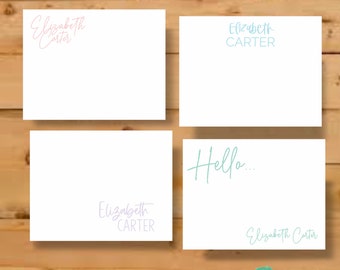 Elizabeth
Carter
Elizabeth
CARTER
Elizabeth
CARTER
Hello...
Elizabeth Carter